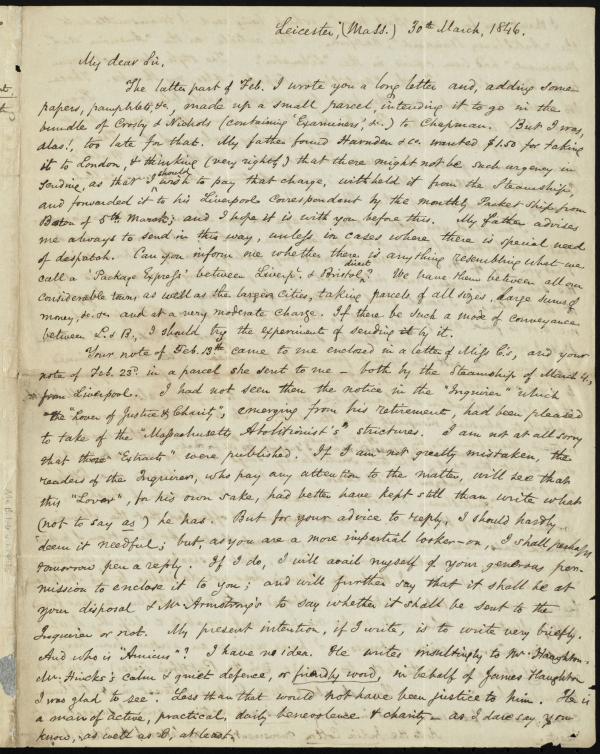 Leicester, (Mass.) 30th March, 1846.
My dear Sir,
The latter part of Feb. I wrote you a long letter and, adding some
papers, pamphlets, &c, made up a small parcel, intending it to go in the
bundle of Crosby & Nichols (containing 'Examiners', &c.) to Chapman. But I was,
alas!, too late for that. My father found Harnden & Co. wanted $1.50 for taking
it to London, & thinking (very rightly) that there might not be such urgency in
sending, as that I should wish to pay that charge, withheld it from the Steamship,
and forwarded it to his Liverpool correspondent by the monthly Packet Ship from
Boston of 5th March; and I hope it is with you before this. My father advises
me always to send in this way, unless in cases where there is special need
of despatch. Can you inform me whether there is anything resembling what we
call a 'Package Express' between Liverp'l. & Bristol direct? We have them between all our
considerable towns, as well as the larger cities, taking parcels of all sizes, large sums of
money, &c. &c. and at a very moderate charge. If there be such a mode of conveyance
between L. & B., I should try the experiment of sending it by it.
Your note of Feb. 13th came to me enclosed in a letter of Miss C's, and your
note of Feb. 23d. in a parcel she sent to me – both by the Steamship of March 4,
from Liverpool. I had not seen then the notice in the "Inquirer" which
the "Lover of Justice & Charity", emerging from his retirement, had been pleased
to take of the "Massachusetts Abolitionist's" strictures. I am not at all sorry
that those "Extracts" were published. If I am not greatly mistaken, the
readers of the Inquirer, who pay any attention to the matter, will see that
this "Lover", for his own sake, had better have kept still than write what
(not to say as) he has. But for your advice to reply, I should hardly
deem it needful; but, as you are a more impartial looker-on, I shall perhaps
tomorrow pen a reply. If I do, I will avail myself of your generous per-
mission to enclose it to you; and will further say that it shall be at
your disposal & Mr Armstrong's to say whether it shall be sent to the
Inquirer or not. My present intention, if I write, is to write very briefly.
And who is "Amicus"? I have no idea. He writes insultingly to Mr. Haughton.
Mr. Hincks's calm & quiet defence, or friendly word, in behalf of James Haughton
I was glad to see. Less than that would not have been justice to him. He is
a man of active, practical, daily benevolence & charity – as I dare say you
know, as well as I, at least.